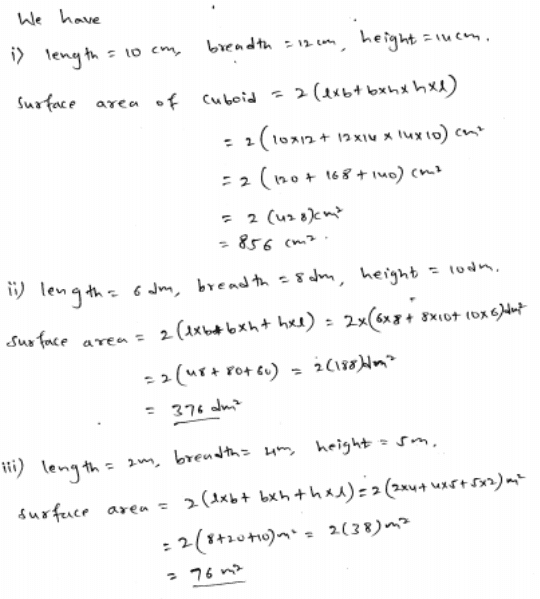 We have
i) length = 10 cm, breadth = 12 cm, height = 14 cm.
Surface area of cuboid = 2 (l×b + b×h × h×l)
= 2 (10×12 + 12×14 × 14×10) cm²
= 2 (120 + 168 + 140) cm²
= 2 (428) cm²
= 856 cm².
ii) length = 6 dm, breadth = 8 dm, height = 10 dm.
Surface area = 2 (l×b + b×h + h×l) = 2×(6×8 + 8×10 + 10×6) dm²
= 2 (48 + 80 + 60) = 2 (188) dm²
= 376 dm²
iii) length = 2m, breadth = 4m, height = 5m.
Surface area = 2 (l×b + b×h + h×l) = 2 (2×4 + 4×5 + 5×2) m²
= 2 (8+20+10) m² = 2(38) m²
= 76 m²